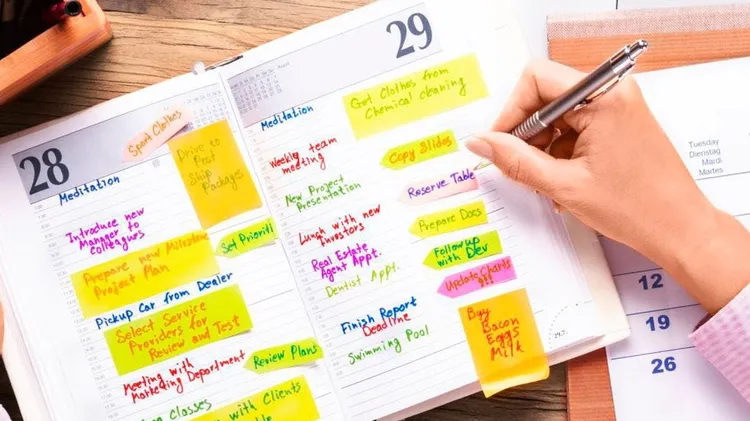 28
Sport Clothes
Meditation
Drive to
Post
Ship
Packages
Introduce new
Manager to
colleagues
Set Prioriti
Prepare new Milestone
Project Plan
Pickup Car from Dealer
Select Service
Providers for
Review and Test
Meeting with
Marketing Department
Review Plans
Classes
with Clients
29
August
Meditation
Get Clothes from
Chemical cleaning
Weekly team
meeting
Copy Slides
New Project
Presentation
Reserve Table
Lunch with new
investors
Prepare Docs
Real Estate
Agent Appt.
Followup
with Dev
Dentist Appt.
Update Charts
!!!
Finish Report
Deadline
Swimming Pool
Buy
Bacon
Eggs
Milk
Tuesday
Dienstag
Mardi
Martes
12
19
26